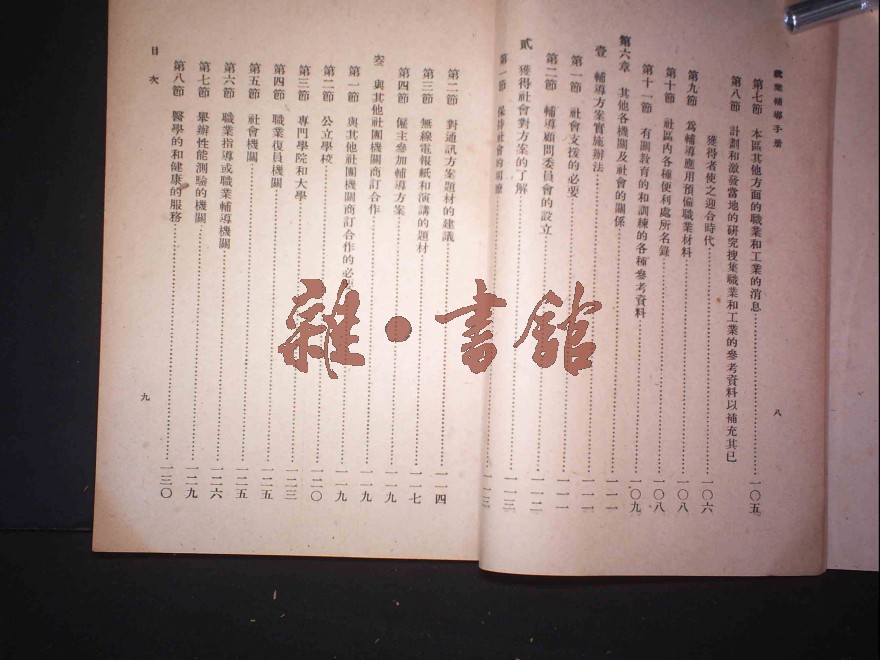 就業輔導手册
八
第七節　本區其他方面的職業和工業的消息……一〇五
第八節　計劃和激發當地的研究搜集職業和工業的參考資料以補充其已
獲得者使之迎合時代……一〇六
第九節　爲輔導應用預備職業材料……一〇八
第十節　社區內各種便利處所名錄……一〇八
第十一節　有關教育的和訓練的各種參考資料……一〇九
第六章　其他各機關及社會的關係……一一一
壹　輔導方案實施辦法……一一一
第一節　社會支援的必要……一一一
第二節　輔導顧問委員會的設立……一一二
貳　獲得社會對方案的了解……一一三
第一節　保持社會的明瞭……一一三
第二節　對通訊方案題材的建議……一一四
第三節　無線電報紙和演講的題材……一一七
第四節　僱主參加輔導方案……一一九
叄　與其他社團機關商訂合作……一一九
第一節　與其他社團機關商訂合作的必要……一一九
第二節　公立學校……一二〇
第三節　專門學院和大學……一二三
第四節　職業復員機關……一二五
第五節　社會機關……一二五
第六節　職業指導或職業輔導機關……一二六
第七節　舉辦性能測驗的機關……一二九
第八節　醫學的和健康的服務……一三〇
目次
九
雜·書館